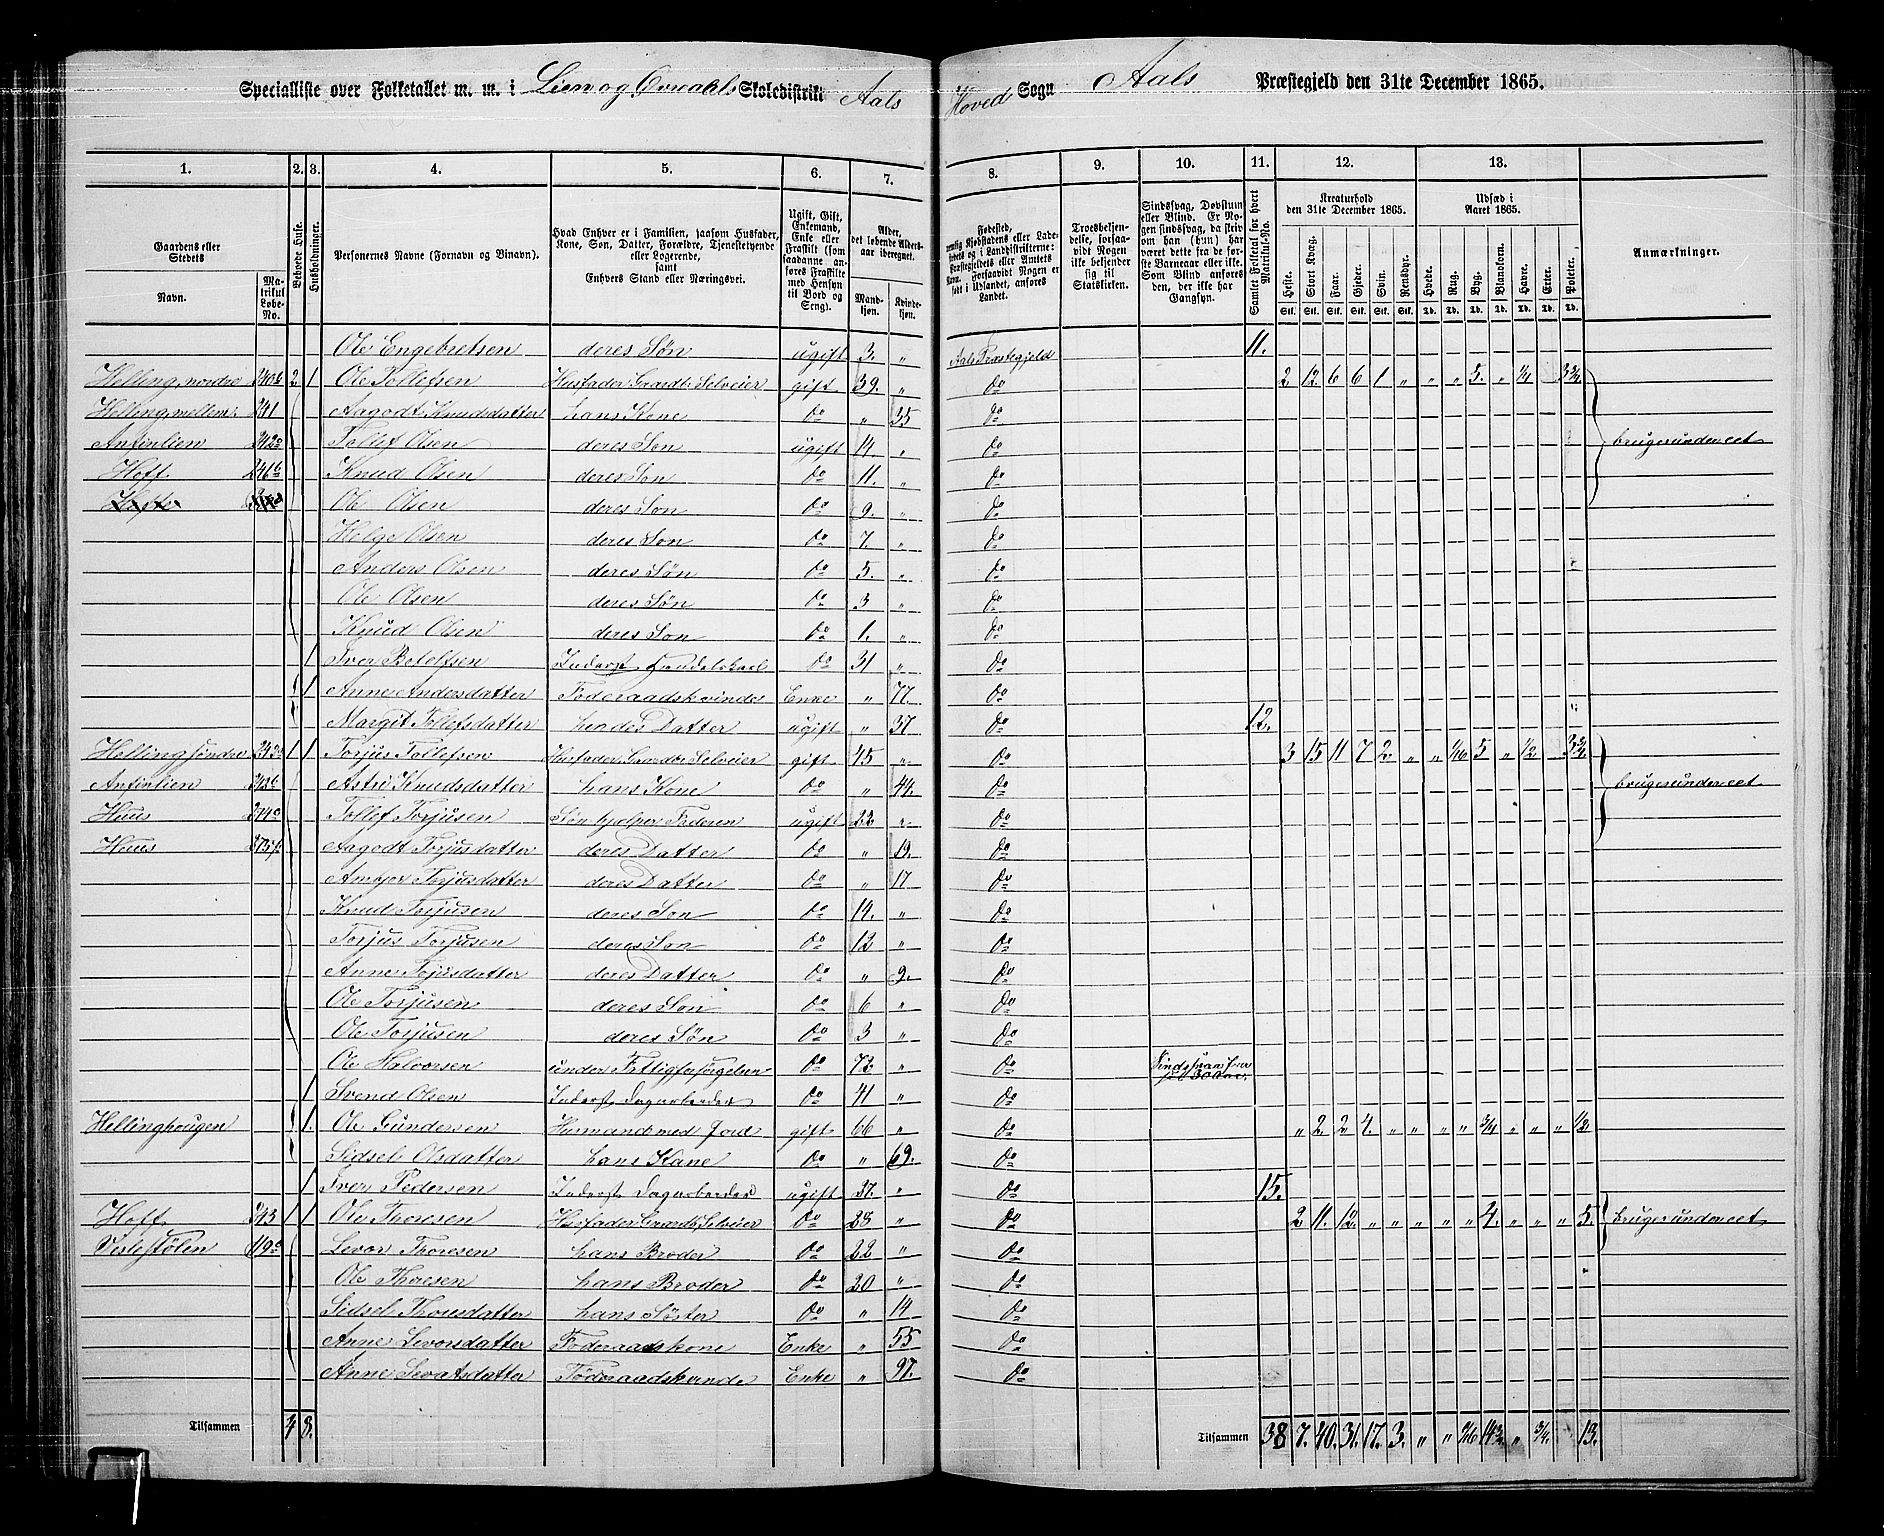 Specialliste over Folketallet m. m. i Lien og Qvindahls Skoledistrikt Aals Hoved Sogn Aals Præstegjeld den 31te December 1865.
1. 2. 3. 4. 5. 6. 7. 8. 9. 10. 11. 12. 13.
Gaardens eller Stedets
Navn. Matrikul Løbe-No.
Beboede Huse.
Husholdninger.
Personernes Navne (Fornavn og Binavn).
Hvad Enhver er i Familien, saasom Husfader, Kone, Søn, Datter, Forældre, Tjenestetyende eller Logerende, samt Enhvers Stand eller Næringsvei.
Ugift, Gift, Enkemand, Enke eller Fraskilt (saadanne anføres Fraskilte med Hensyn til Bord og Seng).
Alder, det løbende Aldersaar iberegnet.
Mandkjøn. Kvindekjøn.
Troesbekjendelse, forsaavidt Nogen ikke bekjender sig til Statskirken.
Sindssvag, Døvstum eller Blind. Er Nogen sindssvag, da skriv om han (hun) har været dette fra de første Barneaar eller ikke. Som Blind anføres den, der ikke har Gangsyn.
Samlet Folketal for hvert Matrikul-No.
Kreaturhold den 31te December 1865.
Heste. Stort Kvæg. Faar. Gjeder. Svin. Rensdyr.
Udsæd i Aaret 1865.
Hvede. Rug. Byg. Blandkorn. Havre. Erter. Poteter.
Anmærkninger.
Ole Engebretsen deres Søn ugift 3. " Aals Præstegjeld 11.
Helling, nordre 240b 2 1 Ole Tollefsen Husfader Gaardbr Selveier gift 39. " Do 2 12 6 6 1 " " " 5. " 1/4 3 3/4
Helling mellem 241 Aagodt Knudsdatter hans Kone Do " 35 Do
Antinlien 242a Tollef Olsen deres Søn ugift 14. " Do bruges under eet
Hoft 246b Knud Olsen deres Søn Do 11. " Do
Ole Olsen deres Søn Do 9. " Do
Helge Olsen deres Søn Do 7. " Do
Anders Olsen deres Søn Do 5. " Do
Ole Olsen deres Søn Do 3 " Do
Knud Olsen deres Søn Do 1. " Do
1 Iver Betelfsen Inderst Handelskarl Do 31 " Do
1 Anne Andersdatter Føderaadskvinde Enke " 77. Do
Margit Tollefsdatter hendes Datter ugift " 37 Do 12.
Helling søndre 1 1 Torjus Tollefsen Husfader Gaardbr Selveier gift 45 " Do 3 15 11 7 2 " " 1/16 5 " 1/2 " 3 3/4
Antinlien 242b Astri Knudsdatter hans Kone Do " 44. Do bruges under eet
Huus Tollef Torjusen Søn hjælper Faderen ugift 22 " Do
Huus Aagodt Torjusdatter deres Datter Do " 19. Do
Torjusdatter deres Datter Do " 17 Do
Knud Torjusen deres Søn Do 14. " Do
Torjus Torjusen deres Søn Do 12 " Do
Anne Tojusdatter deres Datter Do " 9. Do
Ole Torjusen deres Søn Do 6 " Do
Ole Torjusen deres Søn Do 3 " Do
Ole Halvorsen under Fattigforsørgelsen Do 72 " Do
1 Svend Olsen Inderst Dagarbeider Do 41 " Do
Hellinghougen 1. Ole Gundersen Husmand med Jord gift 66 " Do " 2. 2 4. " " " " 3/4 " " " 1/2
Sidsel Olsdatter hans Kone Do " 69. Do
1 Iver Pedersen Inderst Dagarbeider ugift 37. " Do 15.
Hoft 243 1 1 Ole Thoresen Husfader Gaardbr Selveier Do 25 " Do 2 11. 12 " " " " " 4. " " " 5. bruges under eet
Veslestølen 119a Levor Thoresen hans Broder Do 22 " Do
Ole Thoresen hans Broder Do 20 " Do
Sidsel Thoresdatter hans Søster Do " 14 Do
Anne Levorsdatter Føderaadskone Enke " 55 Do
Anne Sevatsdatter Føderaadskvinde Enke " 97. Do
Tilsammen 4 8. Tilsammen 38 7. 40. 31. 17. 3. " " 1/16 14 3/4 " 3/4. 13.